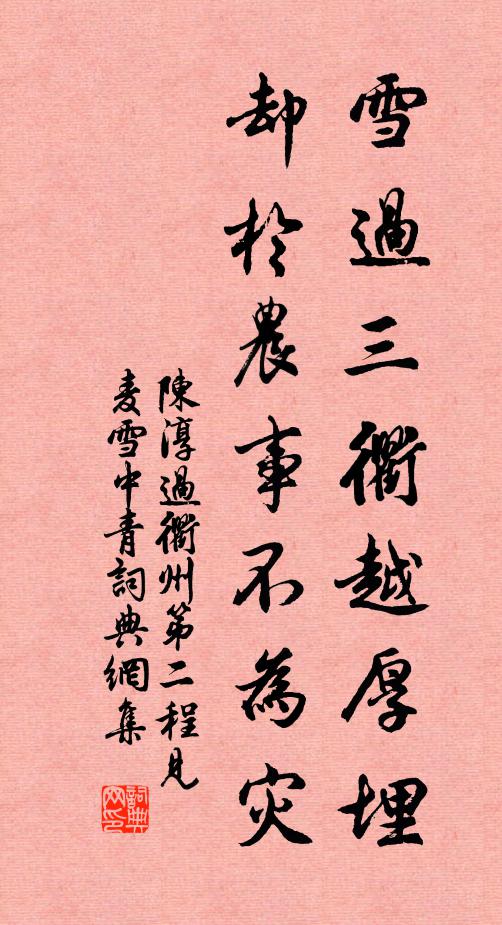 雪過三衢越厚埋
却於農事不為灾
陳淳過衢州第二程見
麦雪中青詞典網集
詞典網印